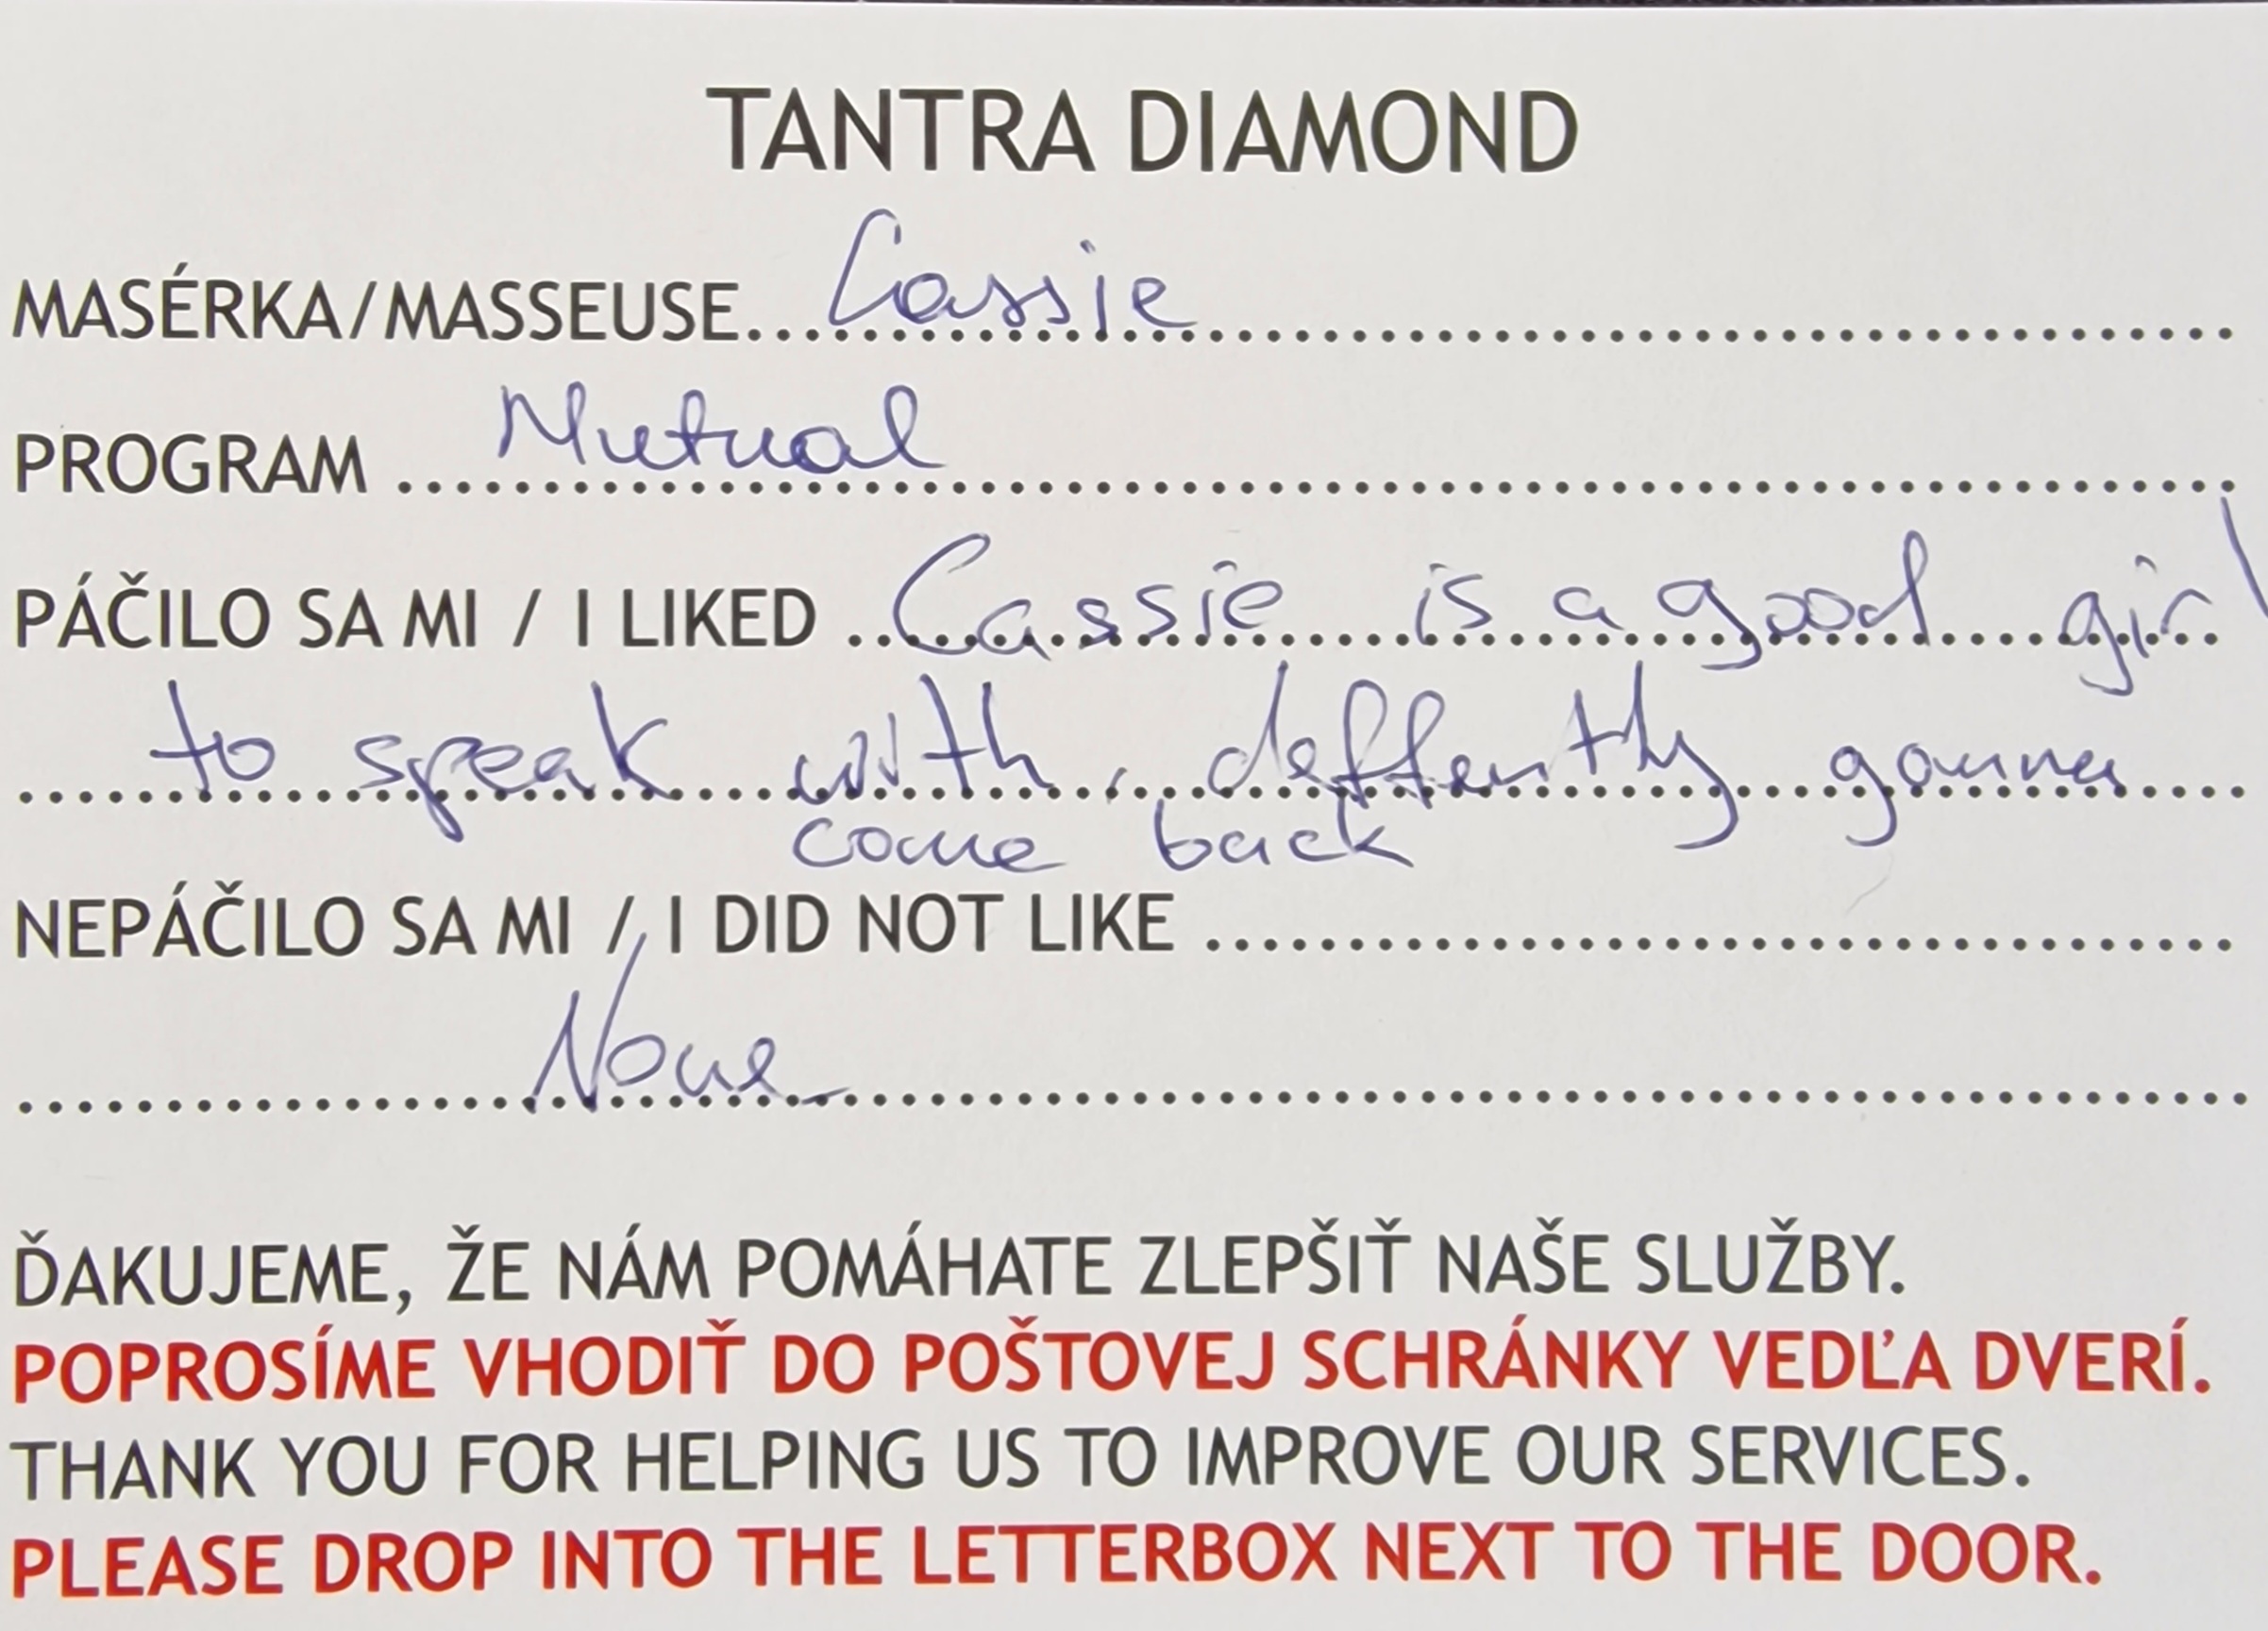 TANTRA DIAMOND
MASÉRKA/MASSEUSE...Cassie...
PROGRAM ...Mutual...
PÁČILO SA MI / I LIKED ...Cassie is a good girl
to speak with, deffently gonna
come back
NEPÁČILO SA MI / I DID NOT LIKE ...
None
ĎAKUJEME, ŽE NÁM POMÁHATE ZLEPŠIŤ NAŠE SLUŽBY.
POPROSÍME VHODIŤ DO POŠTOVEJ SCHRÁNKY VEDĽA DVERÍ.
THANK YOU FOR HELPING US TO IMPROVE OUR SERVICES.
PLEASE DROP INTO THE LETTERBOX NEXT TO THE DOOR.